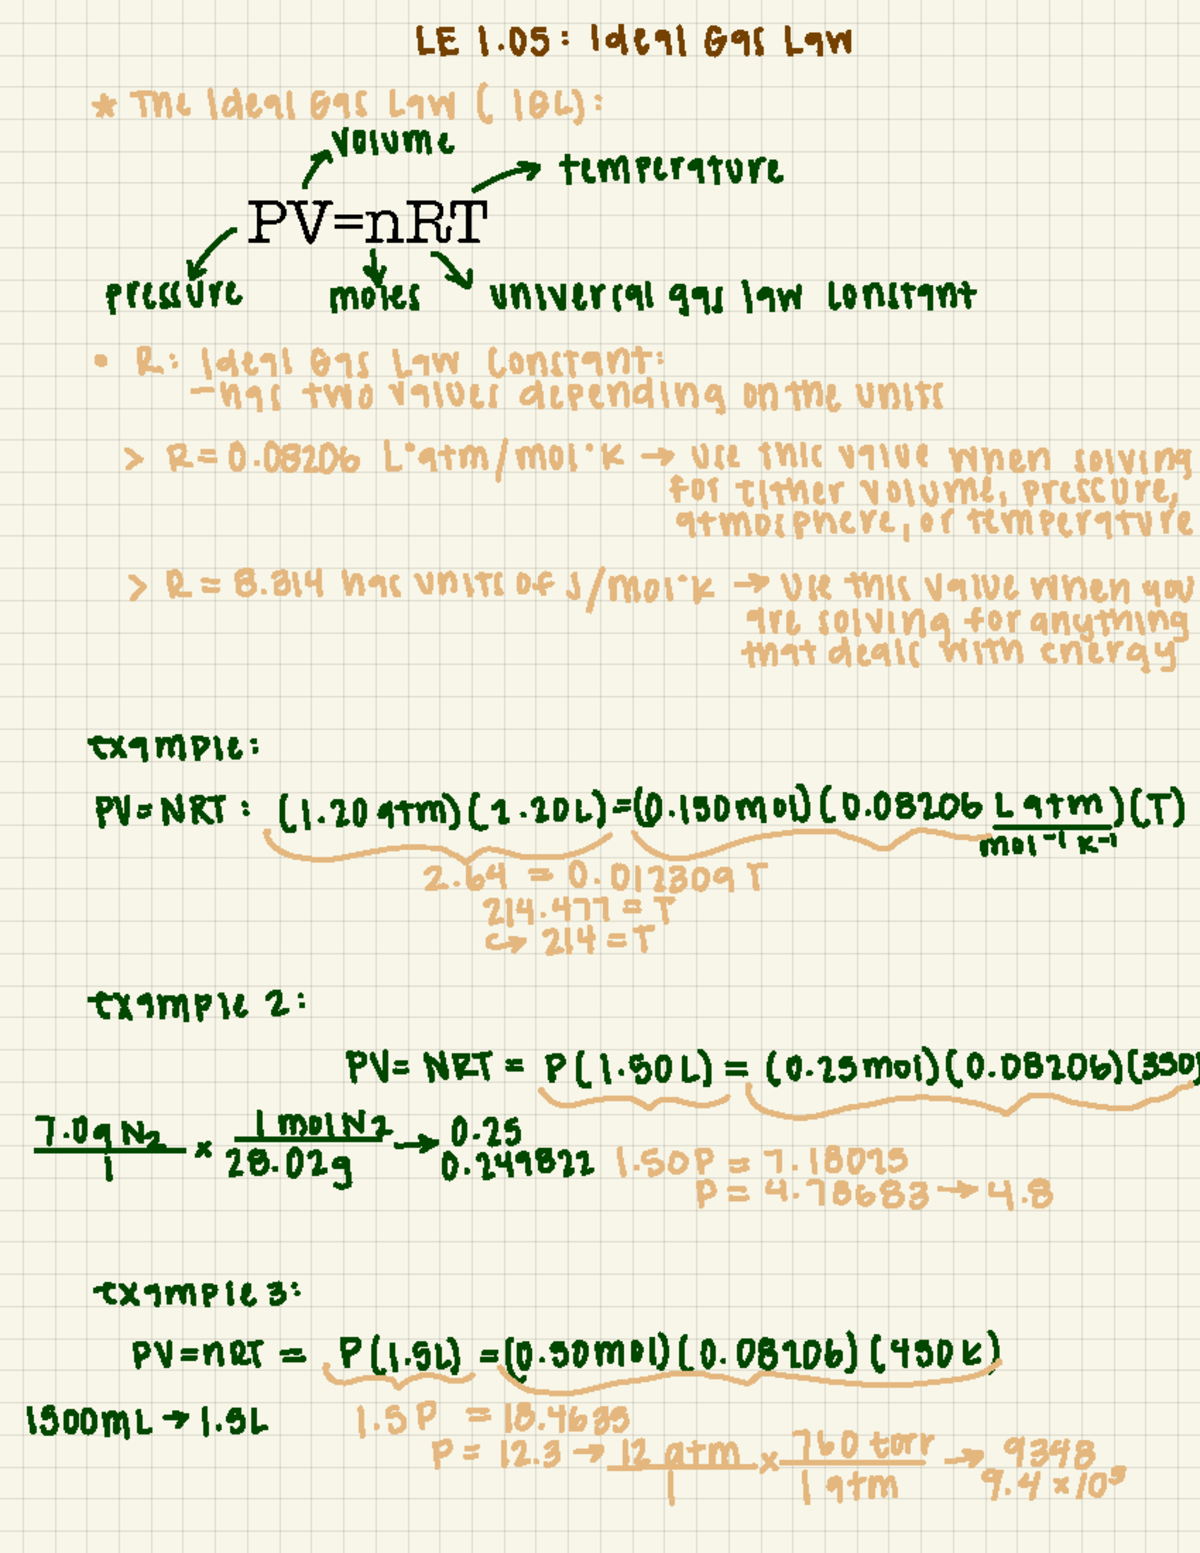 LE 1.05: Ideal Gas Law
* The Ideal Gas Law ( IGL):
volume
temperature
PV=nRT
pressure moles universal gas law constant
• R: Ideal Gas Law Constant:
-has two values depending on the units
> R=0.08206 L°atm/mol°K → use this value when solving
for either volume, pressure,
atmosphere, or temperature
> R = 8.314 has units of J/mol°K → use this value when you
are solving for anything
that deals with energy
Example:
PV=NRT: (1.20 atm)(2.20L)=(0.150mol)(0.08206 L atm)(T)
mol⁻¹ K⁻¹
2.64 = 0.012309 T
214.477 = T
↪ 214 = T
Example 2:
PV= NRT = P(1.50L) = (0.25mol)(0.08206)(350)
7.0g N2 x 1 mol N2 → 0.25
1 28.02g 0.249822
1.50P = 7.18025
P = 4.78683 → 4.8
Example 3:
PV=nRT = P(1.5L) =(0.50mol)(0.08206)(450K)
1500mL → 1.5L
1.5P = 18.4635
P = 12.3 → 12 atm x 760 torr → 9348
1 1 atm 9.4 x10³